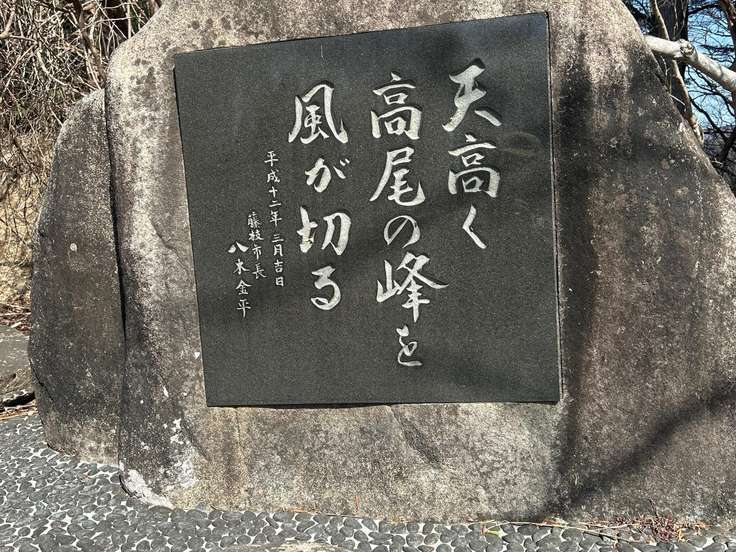 天高く
高尾の峰を
風が切る
平成十二年三月吉日
藤枝市長
八木金平